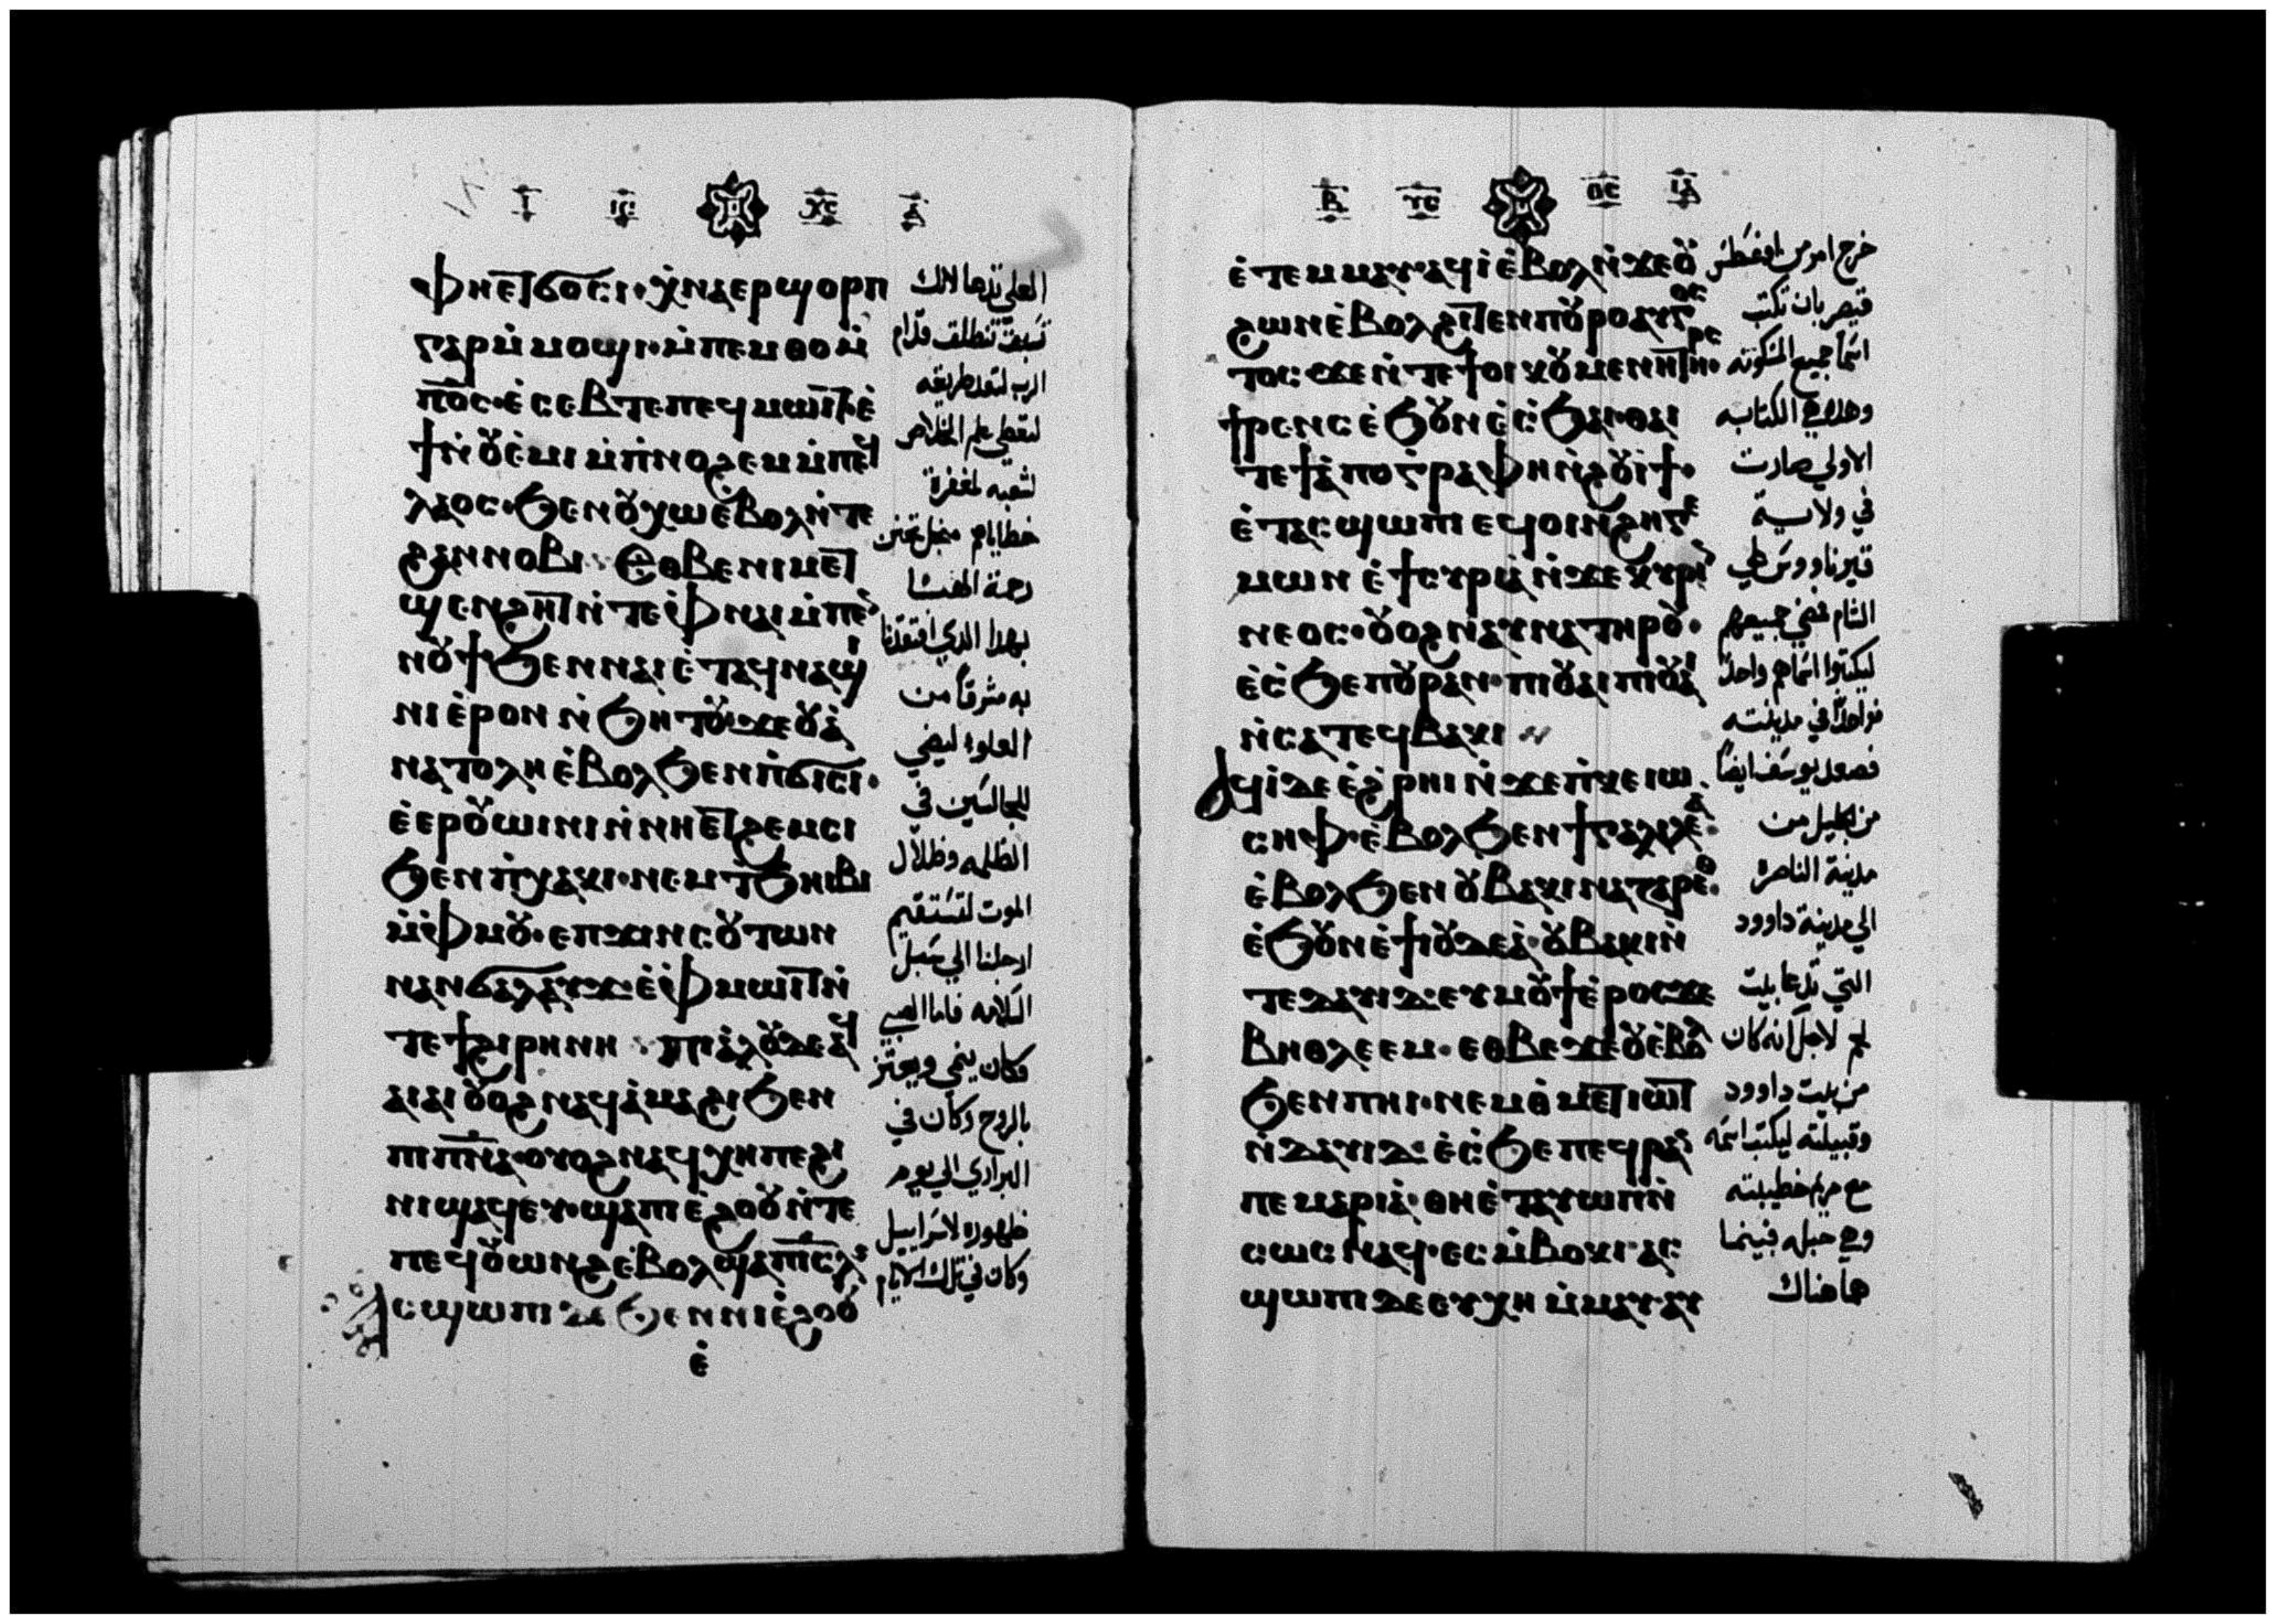 ⲫⲏⲉⲧϭⲟⲥⲓ· ⲭ̇ⲛⲁⲉⲣϣⲟⲣⲡ
ⲅⲁⲣ ⲙ̇ⲙⲟϣⲓ· ⲙ̇ⲡⲉⲙⲑⲟ ⲙ̇
ⲡ̅ⲟ̅ⲥ̅· ⲉ̇ⲥⲉⲃⲧⲉ ⲡⲉϥⲙⲱⲓⲧ· ⲉ̇
ϯⲛ̇ⲟⲩⲉ̇ⲙⲓ ⲙ̇ⲡ̇ⲛⲟϩⲉⲙ ⲙ̇ⲡⲉϥ
ⲗⲁⲟⲥ· ϧⲉⲛ ⲟⲩⲭⲱ ⲉ̇ⲃⲟⲗ ⲛ̇ⲧⲉ
ϩⲁⲛⲛⲟⲃⲓ· ⲉⲑⲃⲉ ⲛⲓⲙⲉⲧ
ϣⲉⲛϩⲏⲧ ⲛ̇ⲧⲉ ⲫ̇ⲛⲁⲓ ⲙ̇ⲡⲉ
ⲛⲟⲩϯ ϧⲉⲛ ⲛⲁⲓ ⲉ̇ⲧⲁϥⲛⲁϣ
ⲛⲓ ⲉ̇ⲣⲟⲛ ⲛ̇ϧⲏⲧⲟⲩ ϫⲉ ⲟⲩⲁ̇
ⲛⲁⲧⲟⲗⲏ ⲉ̇ⲃⲟⲗ ϧⲉⲛ ⲡ̇ϭⲓⲥⲓ·
ⲉ̇ⲉⲣⲟⲩⲱⲓⲛⲓ ⲛ̇ⲛⲏⲉⲧϩⲉⲙⲥⲓ
ϧⲉⲛ ⲡ̇ⲭⲁⲕⲓ· ⲛⲉⲙ ⲧ̇ϧⲏⲓⲃⲓ
ⲙ̇ⲫ̇ⲙⲟⲩ· ⲉⲡϫⲓⲛⲥⲟⲩⲧⲱⲛ
ⲛⲁⲛϭⲁⲗⲁⲩϫ ⲉ̇ⲫ̇ⲙⲱⲓⲧ ⲛ̇
ⲧⲉ ϯϩⲓⲣⲏⲛⲏ· ⲡⲓⲁ̇ⲗⲟⲩ ⲇⲉ ⲁϥ
ⲁⲓⲁⲓ ⲟⲩⲟϩ ⲛⲁϥⲁ̇ⲙⲁϩⲓ ϧⲉⲛ
ⲡⲓⲡ̅ⲛ̅ⲁ̅· ⲟⲩⲟϩ ⲛⲁϥⲭⲏ ⲡⲉ ϩⲓ
ⲛⲓϣⲁϥⲉⲩ· ϣⲁ ⲡⲓⲉ̇ϩⲟⲟⲩ ⲛ̇ⲧⲉ
ⲡⲉϥⲟⲩⲱⲛϩ ⲉ̇ⲃⲟⲗ ϣⲁ ⲡⲓ̅ⲥ̅ⲗ̅
ⲁⲥϣⲱⲡⲓ ⲇⲉ ϧⲉⲛ ⲛⲓⲉ̇ϩⲟⲟⲩ
ⲉ̇
العلي تدعا لانك
تسبق تنطلق قدام
الرب لتعد طريقه
لتعطي علم الخلاص
لشعبه لمغفرة
خطاياهم من اجل تحنن
رحمة الهنا
بهذا الذي افتقدنا
به مشرقاً من
العلوه ليضي
للجالسين في
الظلمه وظلال
الموت لتستقيم
ارجلنا الي سبيل
السلامه فاما الصبي
فكان ينمي ويعتز
بالروح وكان في
البراري الي يوم
ظهوره لاسراييل
وكان في تلك الايام
ⲉ̇ⲧⲉⲙⲙⲁⲩ ⲁϥⲓ̇ ⲉ̇ⲃⲟⲗ ⲛ̇ϫⲉ ⲟⲩ
ϩⲱⲛ ⲉ̇ⲃⲟⲗ ϩⲓⲧⲉⲛ ⲡⲟⲩⲣⲟ ⲁⲩⲅⲟⲥ
ⲧⲟⲥ ϫⲉ ⲛ̇ⲧⲉ ϯⲟⲓⲕⲟⲩⲙⲉⲛⲏ ⲧⲏⲣⲥ·
ϯⲣⲉⲛⲥ ⲉ̇ϧⲟⲩⲛ ⲉ̇ⲥ̇ϧⲁⲓ· ⲑⲁⲓ
ⲧⲉ ϯⲁ̇ⲡⲟⲅⲣⲁⲫⲏ ⲛ̇ϩⲟⲩⲓ̇ϯ·
ⲉ̇ⲧⲁⲥϣⲱⲡⲓ ⲉϥⲟⲓ ⲛ̇ϩⲏⲅⲉ
ⲙⲱⲛ ⲉ̇ϯⲥⲩⲣⲓⲁ̇ ⲛ̇ϫⲉ ⲕⲩⲣⲓ
ⲛⲉⲟⲥ· ⲟⲩⲟϩ ⲛⲁⲩⲛⲁ ⲧⲏⲣⲟⲩ·
ⲉ̇ⲥ̇ϧⲉ ⲡⲟⲩⲣⲁⲛ· ⲡⲓⲟⲩⲁⲓ ⲡⲓⲟⲩⲁⲓ
ⲛ̇ⲥⲁ ⲧⲉϥⲃⲁⲕⲓ
ⲁϥⲓ̇ ⲇⲉ ⲉ̇ϩ̇ⲣⲏⲓ ⲛ̇ϫⲉ ⲡ̇ⲕⲉ ⲓⲱ
ⲥⲏⲫ· ⲉ̇ⲃⲟⲗ ϧⲉⲛ ϯⲅⲁⲗⲓⲗⲉⲁ̇·
ⲉ̇ⲃⲟⲗ ϧⲉⲛ ⲟⲩⲃⲁⲕⲓ ⲛⲁⲍⲁⲣⲉⲑ·
ⲉ̇ϧⲟⲩⲛ ⲉ̇ϯⲓⲟⲩⲇⲉⲁ̇· ⲟⲩⲃⲁⲕⲓ ⲛ̇
ⲧⲉ ⲇⲁⲩⲓⲇ· ⲉⲩⲙⲟⲩϯ ⲉ̇ⲣⲟⲥ ϫⲉ
ⲃⲏⲑⲗⲉⲉⲙ· ⲉⲑⲃⲉ ϫⲉ ⲟⲩⲉ̇ⲃⲟⲗ
ϧⲉⲛ ⲡⲏⲓ· ⲛⲉⲙ ⲑ̇ⲙⲉⲧⲓⲱⲧ
ⲛ̇ⲇⲁⲩⲓⲇ· ⲉ̇ⲥ̇ϧⲉ ⲡⲉϥⲣⲁⲛ
ⲛⲉⲙ ⲙⲁⲣⲓⲁ̇· ⲑⲏⲉ̇ⲧⲁⲩⲱⲡ ⲛ̇
ⲥⲱⲥ ⲛⲁϥ· ⲉⲥⲙ̇ⲃⲟⲕⲓ· ⲁⲥ
ϣⲱⲡⲓ ⲇⲉ ⲉⲩⲭⲏ ⲙ̇ⲙⲁⲩ ⲁⲩ
خرج امر من اغسطس
قيصر بان تكتب
اسما جميع المسكونه
وهذه هي الكتابه
الاولي صارت
في ولاية
قيرناووس علي
الشام فمضي جميعهم
ليكتبوا اسماهم واحداً
فواحداً في مدينته
فصعد يوسف ايضاً
من الجليل من
مدينة الناصره
الي مدينة داوود
التي تدعا بيت
لحم لاجل انه كان
من بيت داوود
وقبيلته ليكتب اسمه
مع مريم خطيبته
وهي حبله فبينما
هما هناك